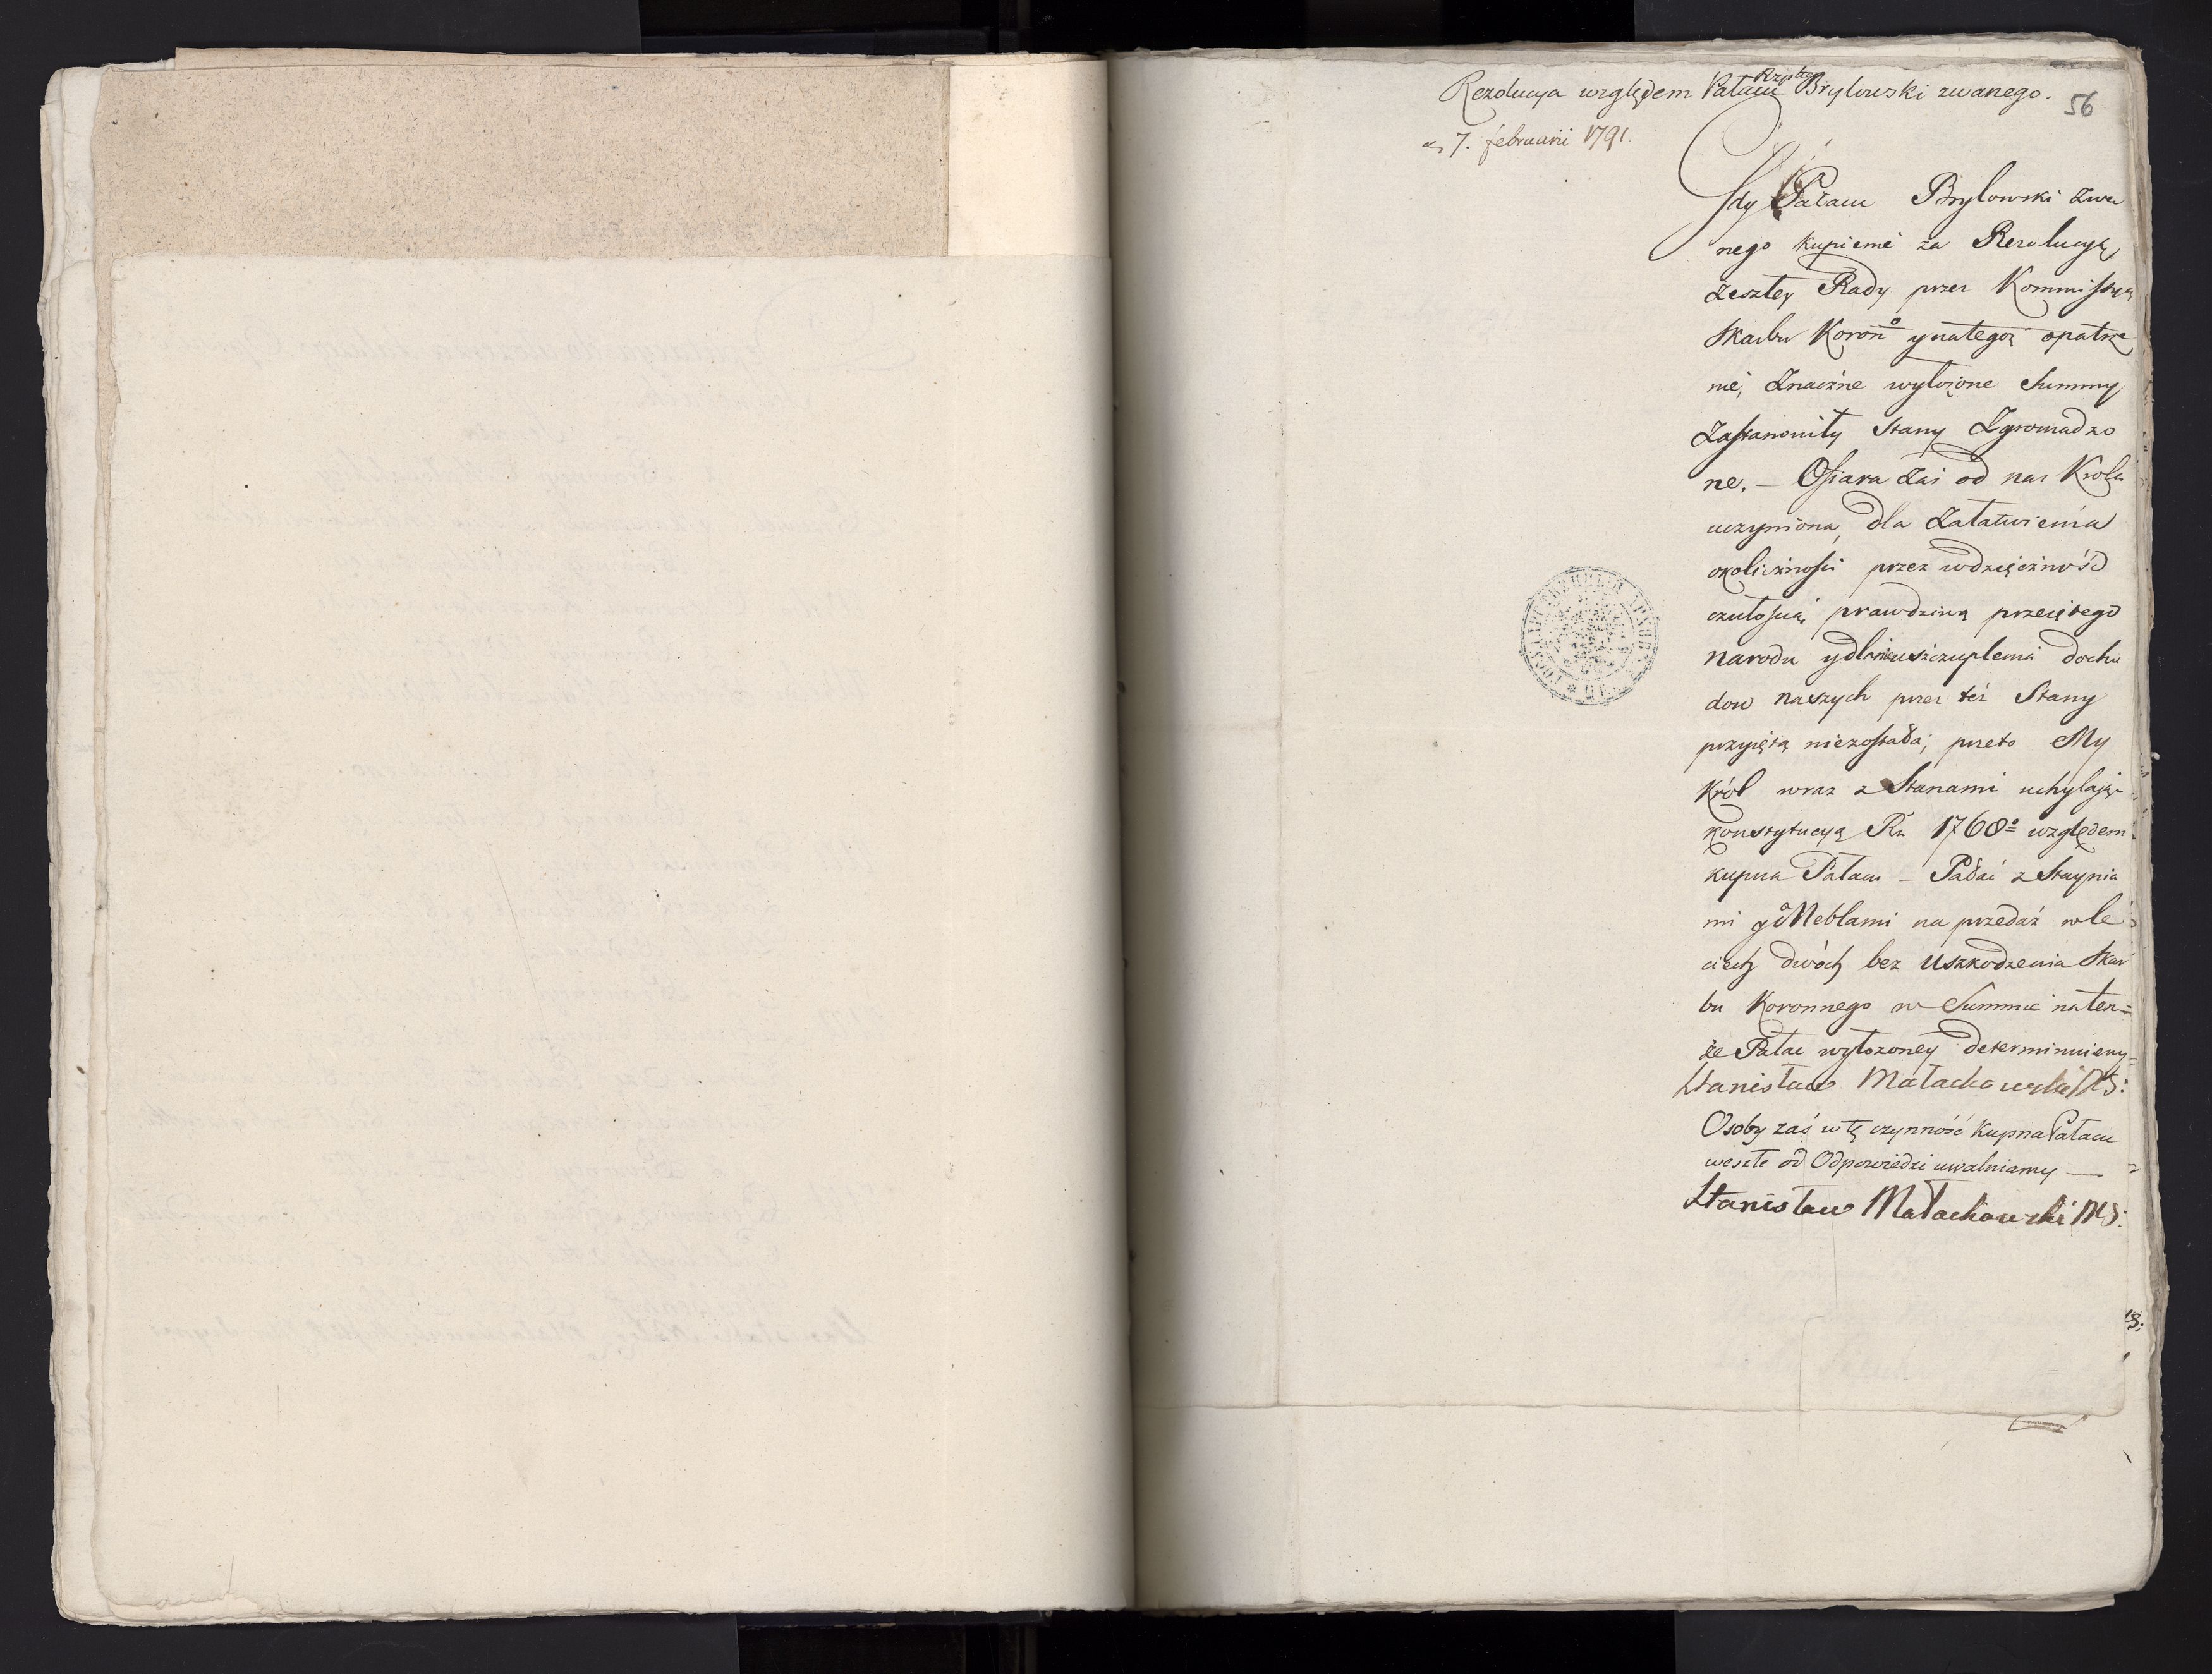 Rezolucya względem Pałacu Rzpltey Brylowski zwanego.
56
d. 7. februarii 1791.
Gdy Pałacu Brylowski zwa
nego kupienie za Rezolucyą
Zeszłey Rady przez Kommissyą
Skarbu Koron° y na tegoż opatrze
nie, Znaczne wyłożone Summy
Zastanowiły Stany Zgromadzo
ne. – Ofiara zaś od nas Krola
uczyniona, dla załatwienia
okoliczności przez wdzięczność
czułością prawdziwą przeiętego
narodu y dla nieuszczuplenia docho
dow naszych przez też Stany
przyiętą niezostała; przeto My
Król wraz z Stanami uchylając
konstytucyą Rku 1768° względem
kupna Pałacu – Pałac z Staynia
mi y Meblami na przedaż w le
ciech dwóch bez uszkodzenia Skar
bu Koronnego w Summie na ten=
że Pałac wyłożoney determinuiemy=
Stanisław Małachowski MS:
Osoby zaś w tę czynność kupna Pałacu
weszłe od Odpowiedzi uwalniamy —
Stanisław Małachowski MS: